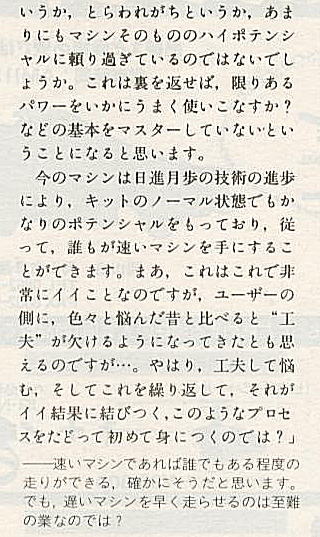 いうか，とらわれがちというか，あま
りにもマシンそのもののハイポテンシ
ャルに頼り過ぎているのではないでし
ょうか。これは裏を返せば，限りある
パワーをいかにうまく使いこなすか？
などの基本をマスターしていないとい
うことになると思います。
　今のマシンは日進月歩の技術の進歩
により，キットのノーマル状態でもか
なりのポテンシャルをもっており，従
って，誰もが速いマシンを手にするこ
とができます。まあ，これはこれで非
常にイイことなのですが，ユーザーの
側に，色々と悩んだ昔と比べると“工
夫”が欠けるようになってきたとも思
えるのですが…。やはり，工夫して悩
む，そしてこれを繰り返して，それが
イイ結果に結びつく，このようなプロセ
スをたどって初めて身につくのでは？」
――速いマシンであれば誰でもある程度の
走りができる，確かにそうだと思います。
でも，遅いマシンを早く走らせるのは至難
の業なのでは？